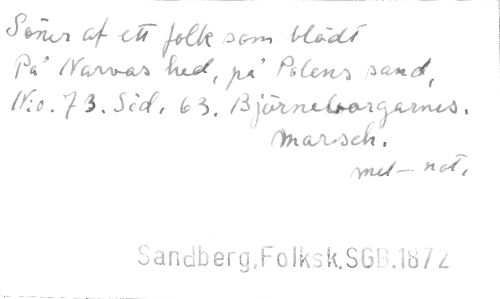 Söner af ett folk som blödt
På Narvas hed, på Polens sand,
N:o. 73. Sid. 63. Björneborgarnes.
marsch.
mel-not.
Sandberg,Folksk,SGB,1872